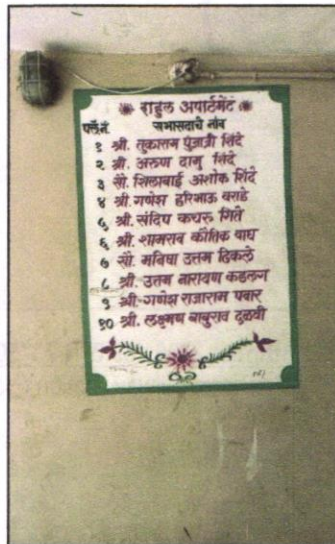 राहुल अपार्टमेंट
फ्लॅ.नं. सभासदाचे नांव
१ श्री. तुकाराम पुंजाजी शिंदे
२ श्री. अरुण दामु शिंदे
३ सौ. शिलाबाई अशोक शिंदे
४ श्री. गणेश हरिभाऊ वराडे
५ श्री. संदिप कचरु गिते
६ श्री. शामराव कौतिक वाघ
७ सौ. मनिषा उत्तम ढिकले
८ श्री. उत्तम नारायण कडलग
९ श्री. गणेश राजाराम पवार
१० श्री. लक्ष्मण बाबुराव दळवी